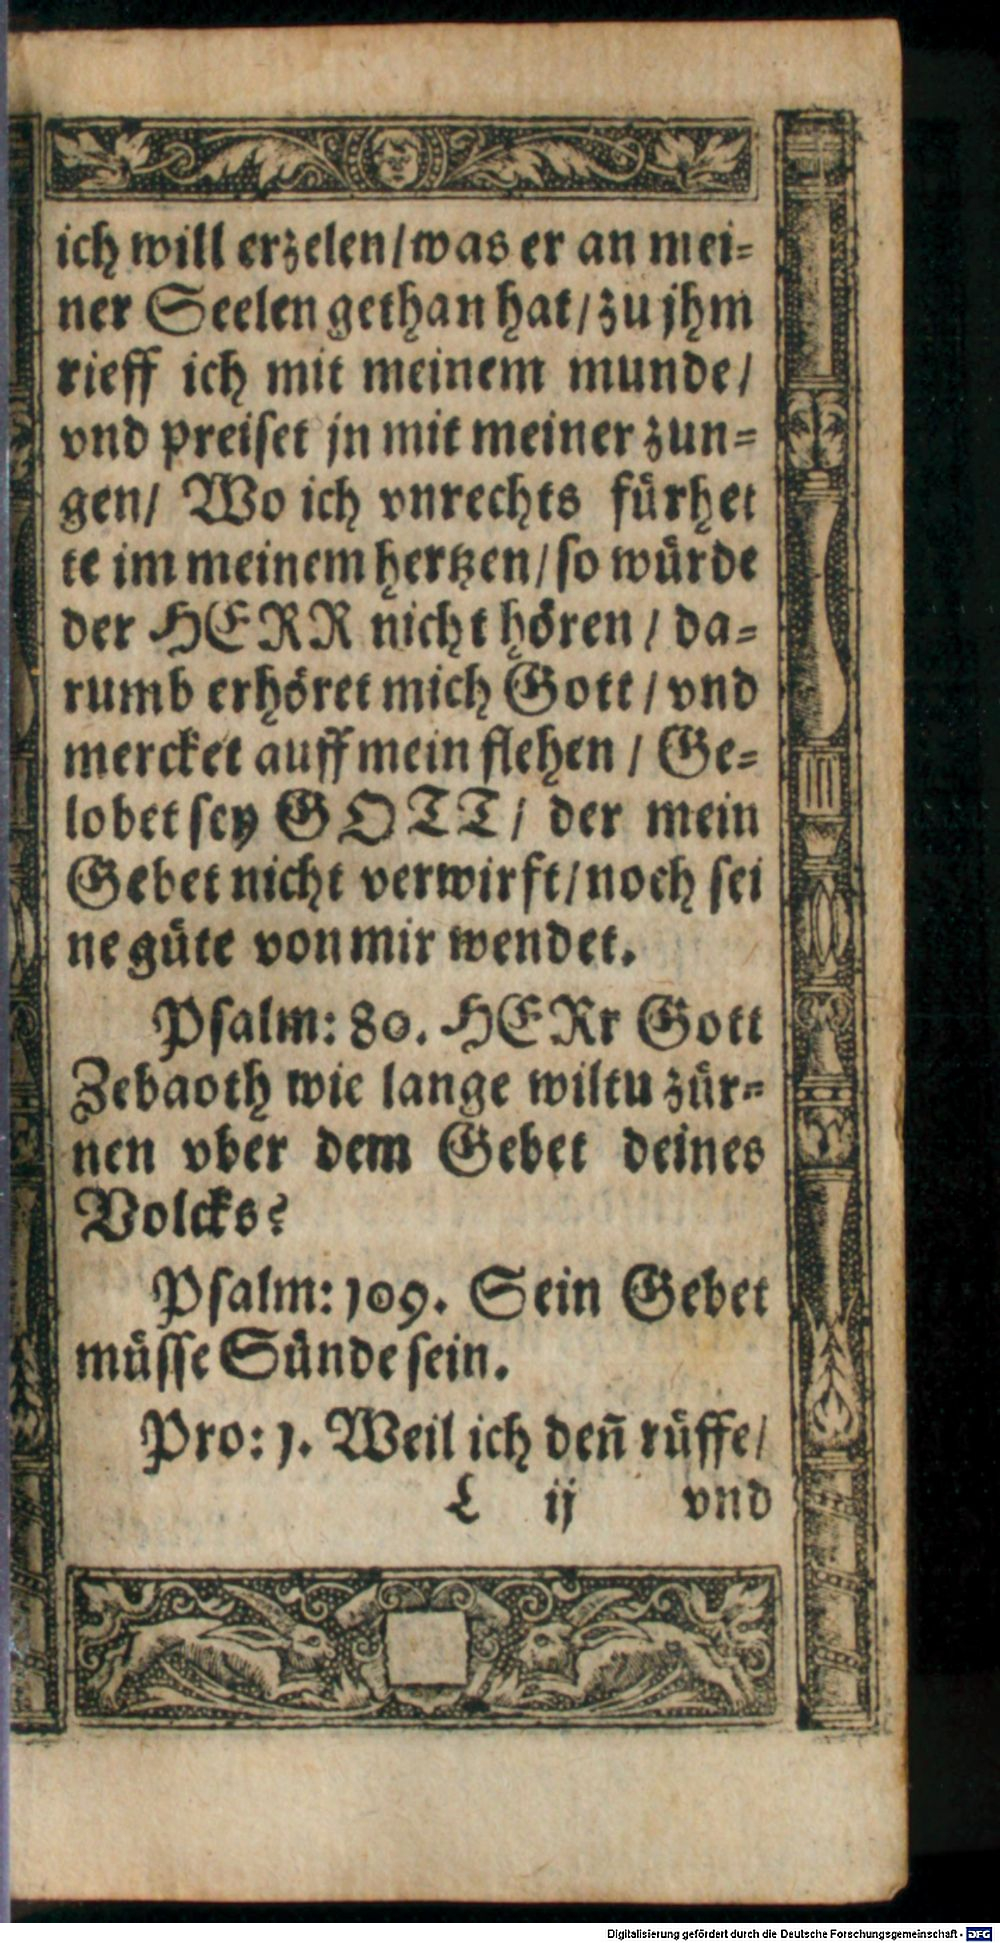 ich will erzelen/was er an mei=
ner Seelen gethan hat/zu jhm
rieff ich mit meinem munde/
vnd preiset jn mit meiner zun=
gen/ Wo ich vnrechts fürhet
te im meinem hertzen/so würde
der HERR nicht hören/da=
rumb erhöret mich Gott/vnd
mercket auff mein flehen/Ge=
lobet sey GOTT/ der mein
Gebet nicht verwirft/noch sei
ne güte von mir wendet.
Psalm: 80. HERr Gott
Zebaoth wie lange wiltu zür=
nen vber dem Gebet deines
Volcks?
Psalm: 109. Sein Gebet
müsse Sünde sein.
Pro: 1. Weil ich deñ rüffe/
L ij vnd
Digitalisierung gefördert durch die Deutsche Forschungsgemeinschaft - DFG